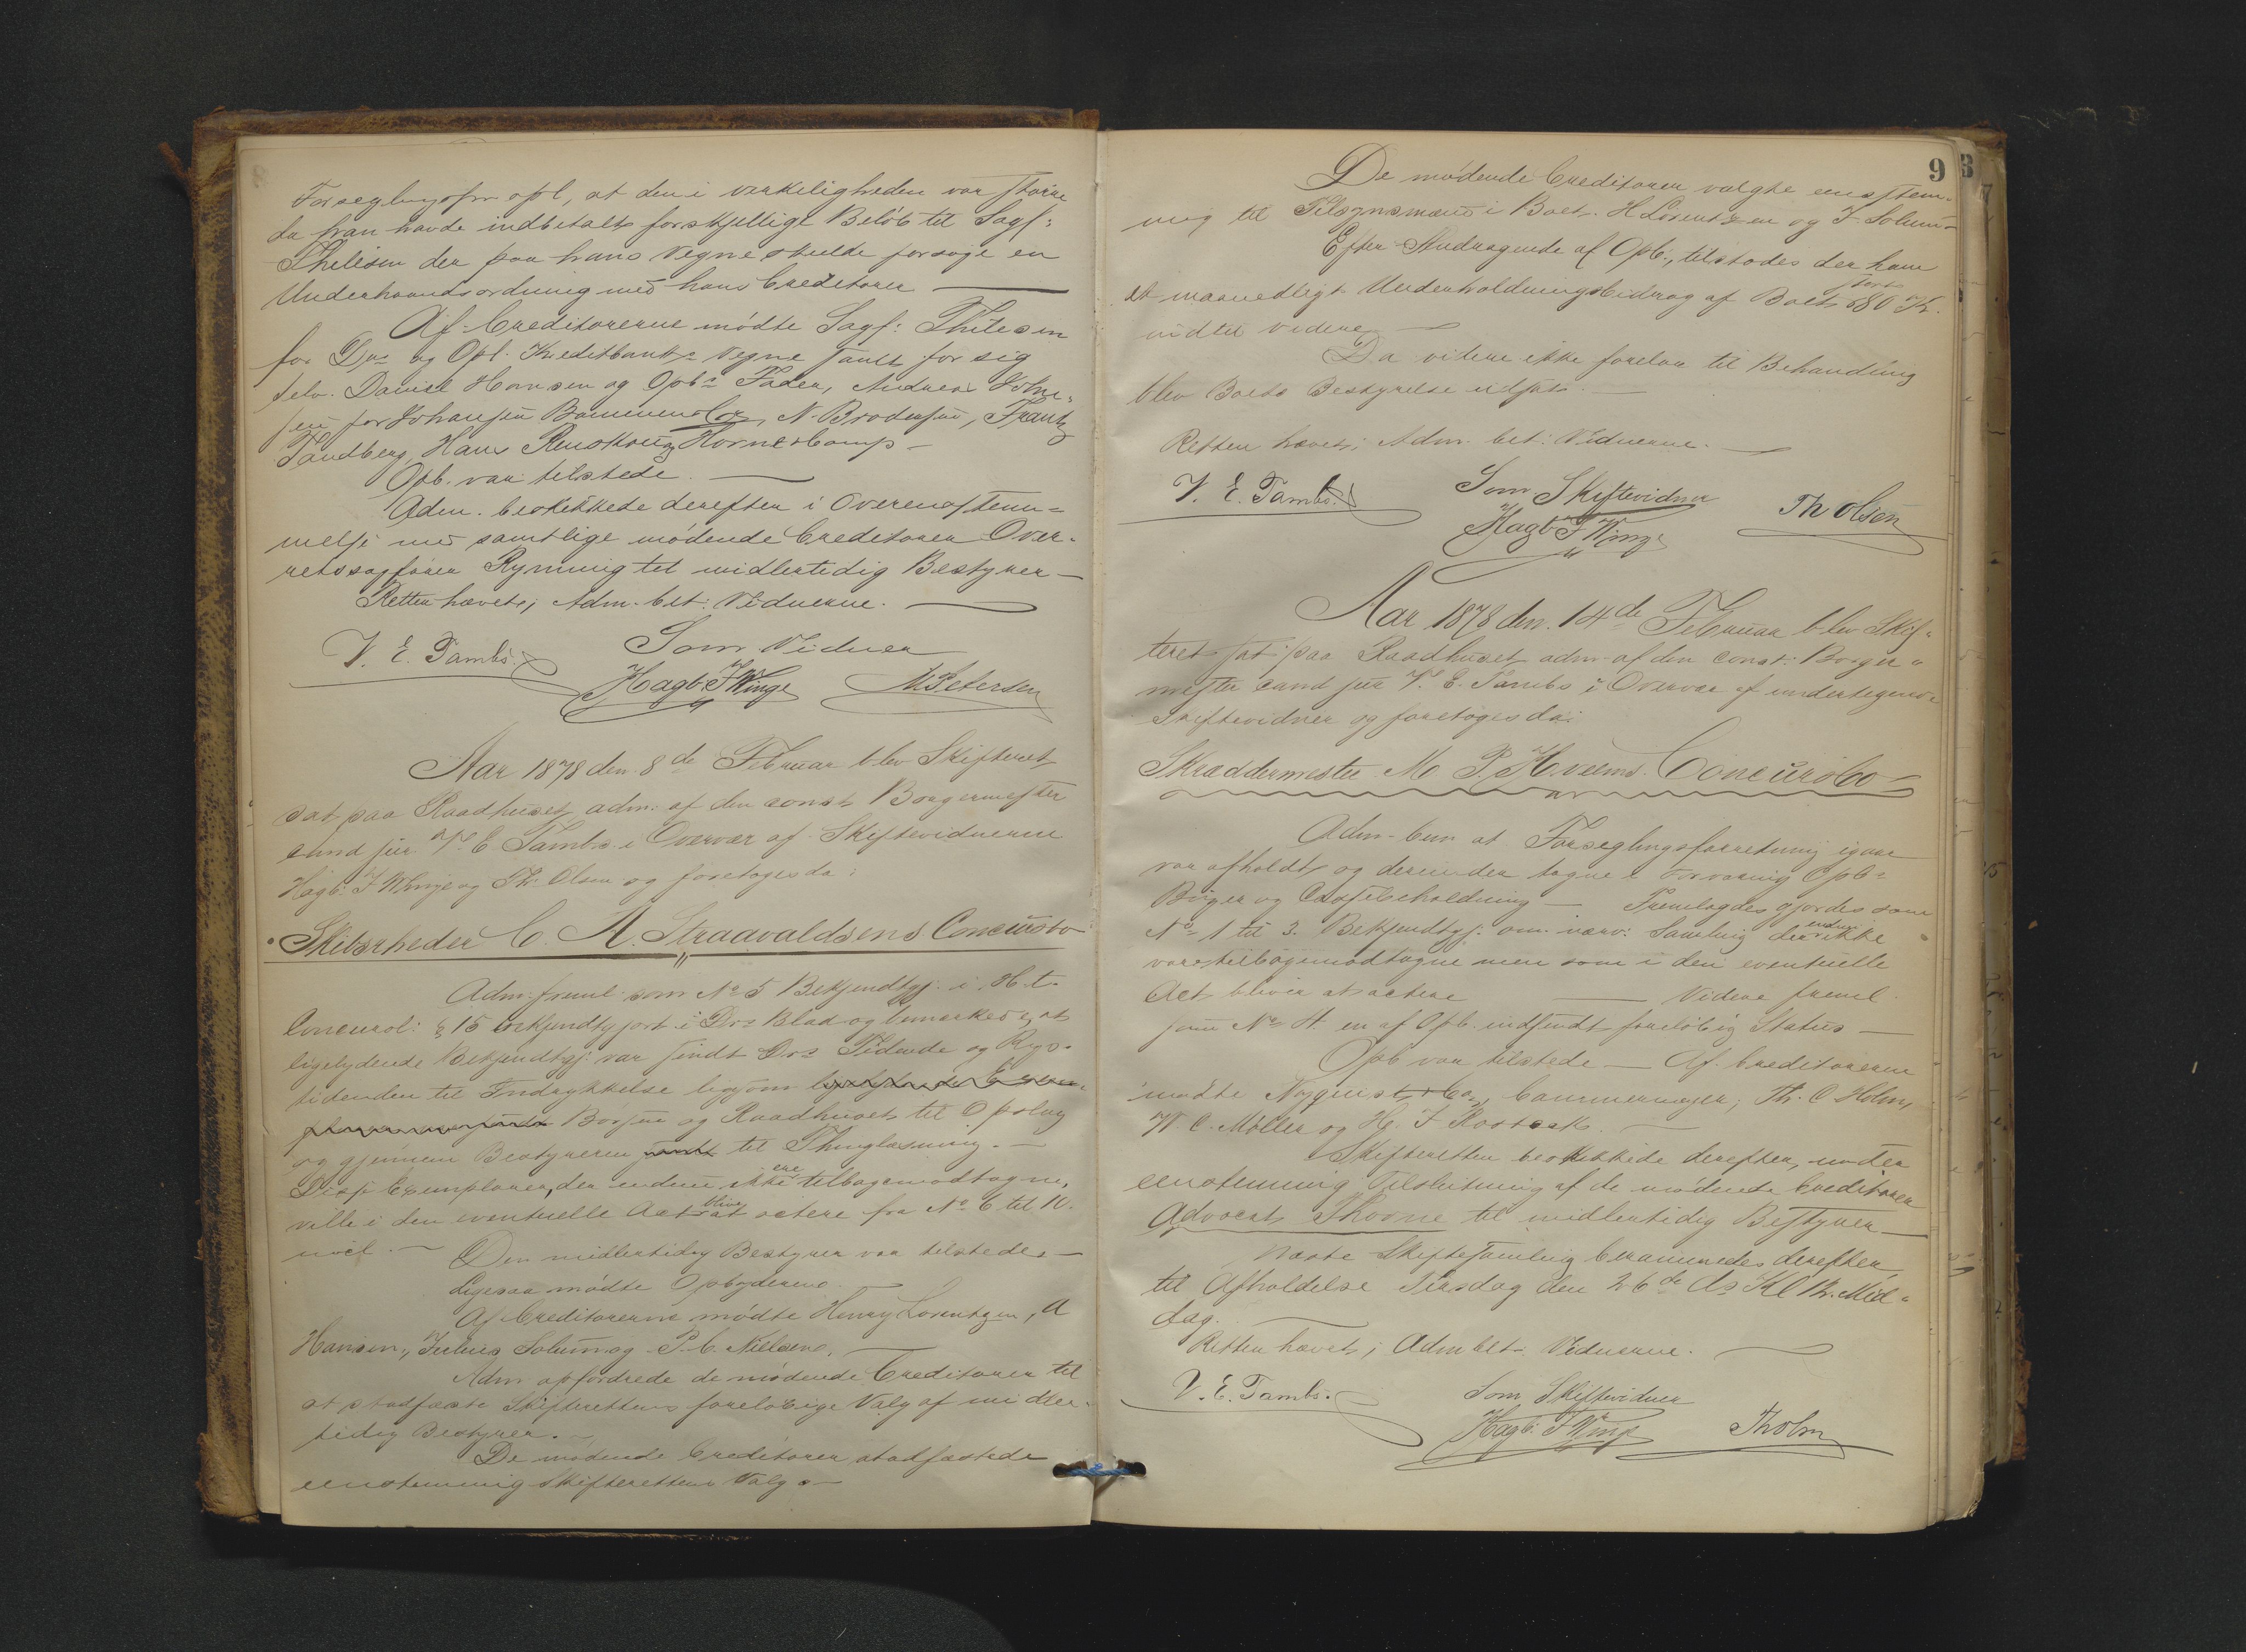 Forseglingsfor. opl, at den i virkeligheden var større
da han havde indbetalt forskjellige Beløb til Sagf:
Thilesen der paa hans Vegne skulde forsøge en
Underhaandsordning med hans Creditorer
Af Creditorerne mødte Sagf: Thilesen
for Ds og Opl. Kreditbanks Vegne samt for sig
selv. Daniel Hansen og Opbs Fader, Andreas
for Johansen N. Brodersen, Frantz
Tandberg, Hans og Hornes Comp
Opb. var tilstede.
Adm. beskikkede derefter i Overensstem=
melse med samtlige mødende Creditorer Over-
retssagfører Rynning til midlertidig Bestyrer
Retten hævet; Adm. bet: Vidnerne.
V. E. Tambs. Som Vidner
Hagb. F Winge M Petersen
Aar 1878 den 8de Februar blev Skifteret
sat paa Raadhuset adm: af den const Borgermester
cand jur. V. E Tambs i Overvær af Skiftevidnerne
Hagb: F Winge og Th: Olsen og foretoges da:
Skibsrheder C. A. Straavaldsens Concursbo
Adm: freml: som No 5 Bekjendtgj. i H. t.
Concursl: § 15 bekjendtgjort i Drs Blad og bemærkede, at
ligelydende Bekjendtgj. var sendt Drs Tidende og Rigs-
tidenden til Indrykkelse ligesom
Børsen og Raadhuset til Opslag
og gjennem Bestyreren sendt til Thinglæsning.
Disse Exemplarer, der endnu ikke ere tilbagemodtagne,
ville i den eventuelle Act blive at actere fra No 6 til 10.
incl. Den midlertidig Bestyrer var tilstede
Ligesaa mødte Opbyderne.
Af Creditorerne mødte Henry Lorentzen, A
Hansen, Julius Solum og P. C. Nielsen.
Adm opfordrede de mødende Creditorer til
at stadfæste Skifterettens foreløbige Valg af midler-
tidig Bestyrer.
De mødende Creditorer stadfæstede
eenstemmig Skifterettens Valg
9
3
De mødende Creditorer valgte eenstem-
mig til Tilsynsmænd i Boet H Lorentzen og J. Solum
Efter Andragende af Opb., tilstodes der ham
et maanedligt Underholdningsbidrag af Boet stort 80 Kr.
indtil videre
Da videre ikke forelaa til Behandling
blev Boets Bestyrelse udsat.
Retten hævet; Adm. bet: Vidnerne.
V. E. Tambs. Som Skiftevidner
Hagb: F Winge Th Olsen
Aar 1878 den 14de Februar blev Skif-
teret sat paa Raadhuset adm. af den const: Borger-
mester cand jur V. E. Tambs i Overvær af undertegnede
Skiftevidner og foretoges da:
Skræddermester M. P. Hveems Concursbo
Adm. bem at Forseglingsforretning igaar
var afholdt og derunder tagne i Forvaring Opbs
Bøger og Cassebeholdning Fremlagdes gjordes som
No 1 til 3. Bekjendtgj: om nærv: Samling der endnu ikke
vare tilbagemodtagne men som i den eventuelle
Act bliver at actere Videre freml.
som No 4. en af Opb. indsendt foreløbig Status
Opb var tilstede Af Creditorerne
mødte Nyquist & Co, Cammermeyer, Th. C Holm,
W. C. Møller og H. J Rostock.
Skifteretten beskikkede derefter, under
eenstemmig Tilslutning af de mødende Creditorer
Advocat Thorne til midlertidig Bestyrer
Næste Skiftesamling berammedes derefter
til Afholdelse Tirsdag den 26de ds Kl 12. Mid-
dag.
Retten hævet; Adm bet. Vidnerne.
V. E. Tambs. Som Skiftevidner
Hagb: F Winge Th Olsen